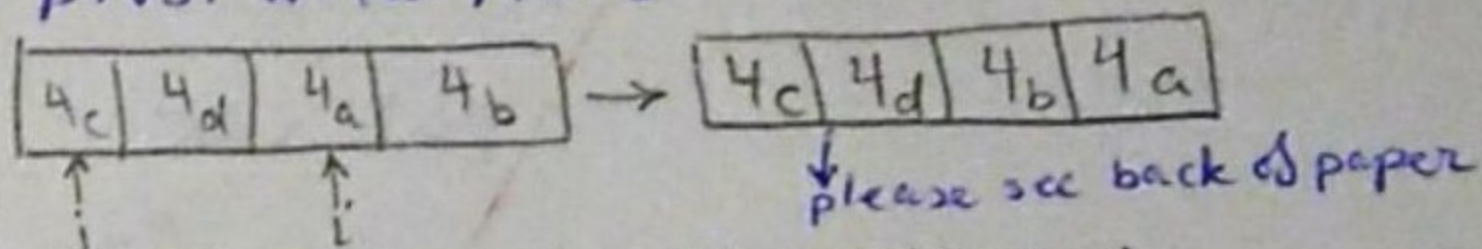 4c 4d 4a 4b → 4c 4d 4b 4a
please see back of paper